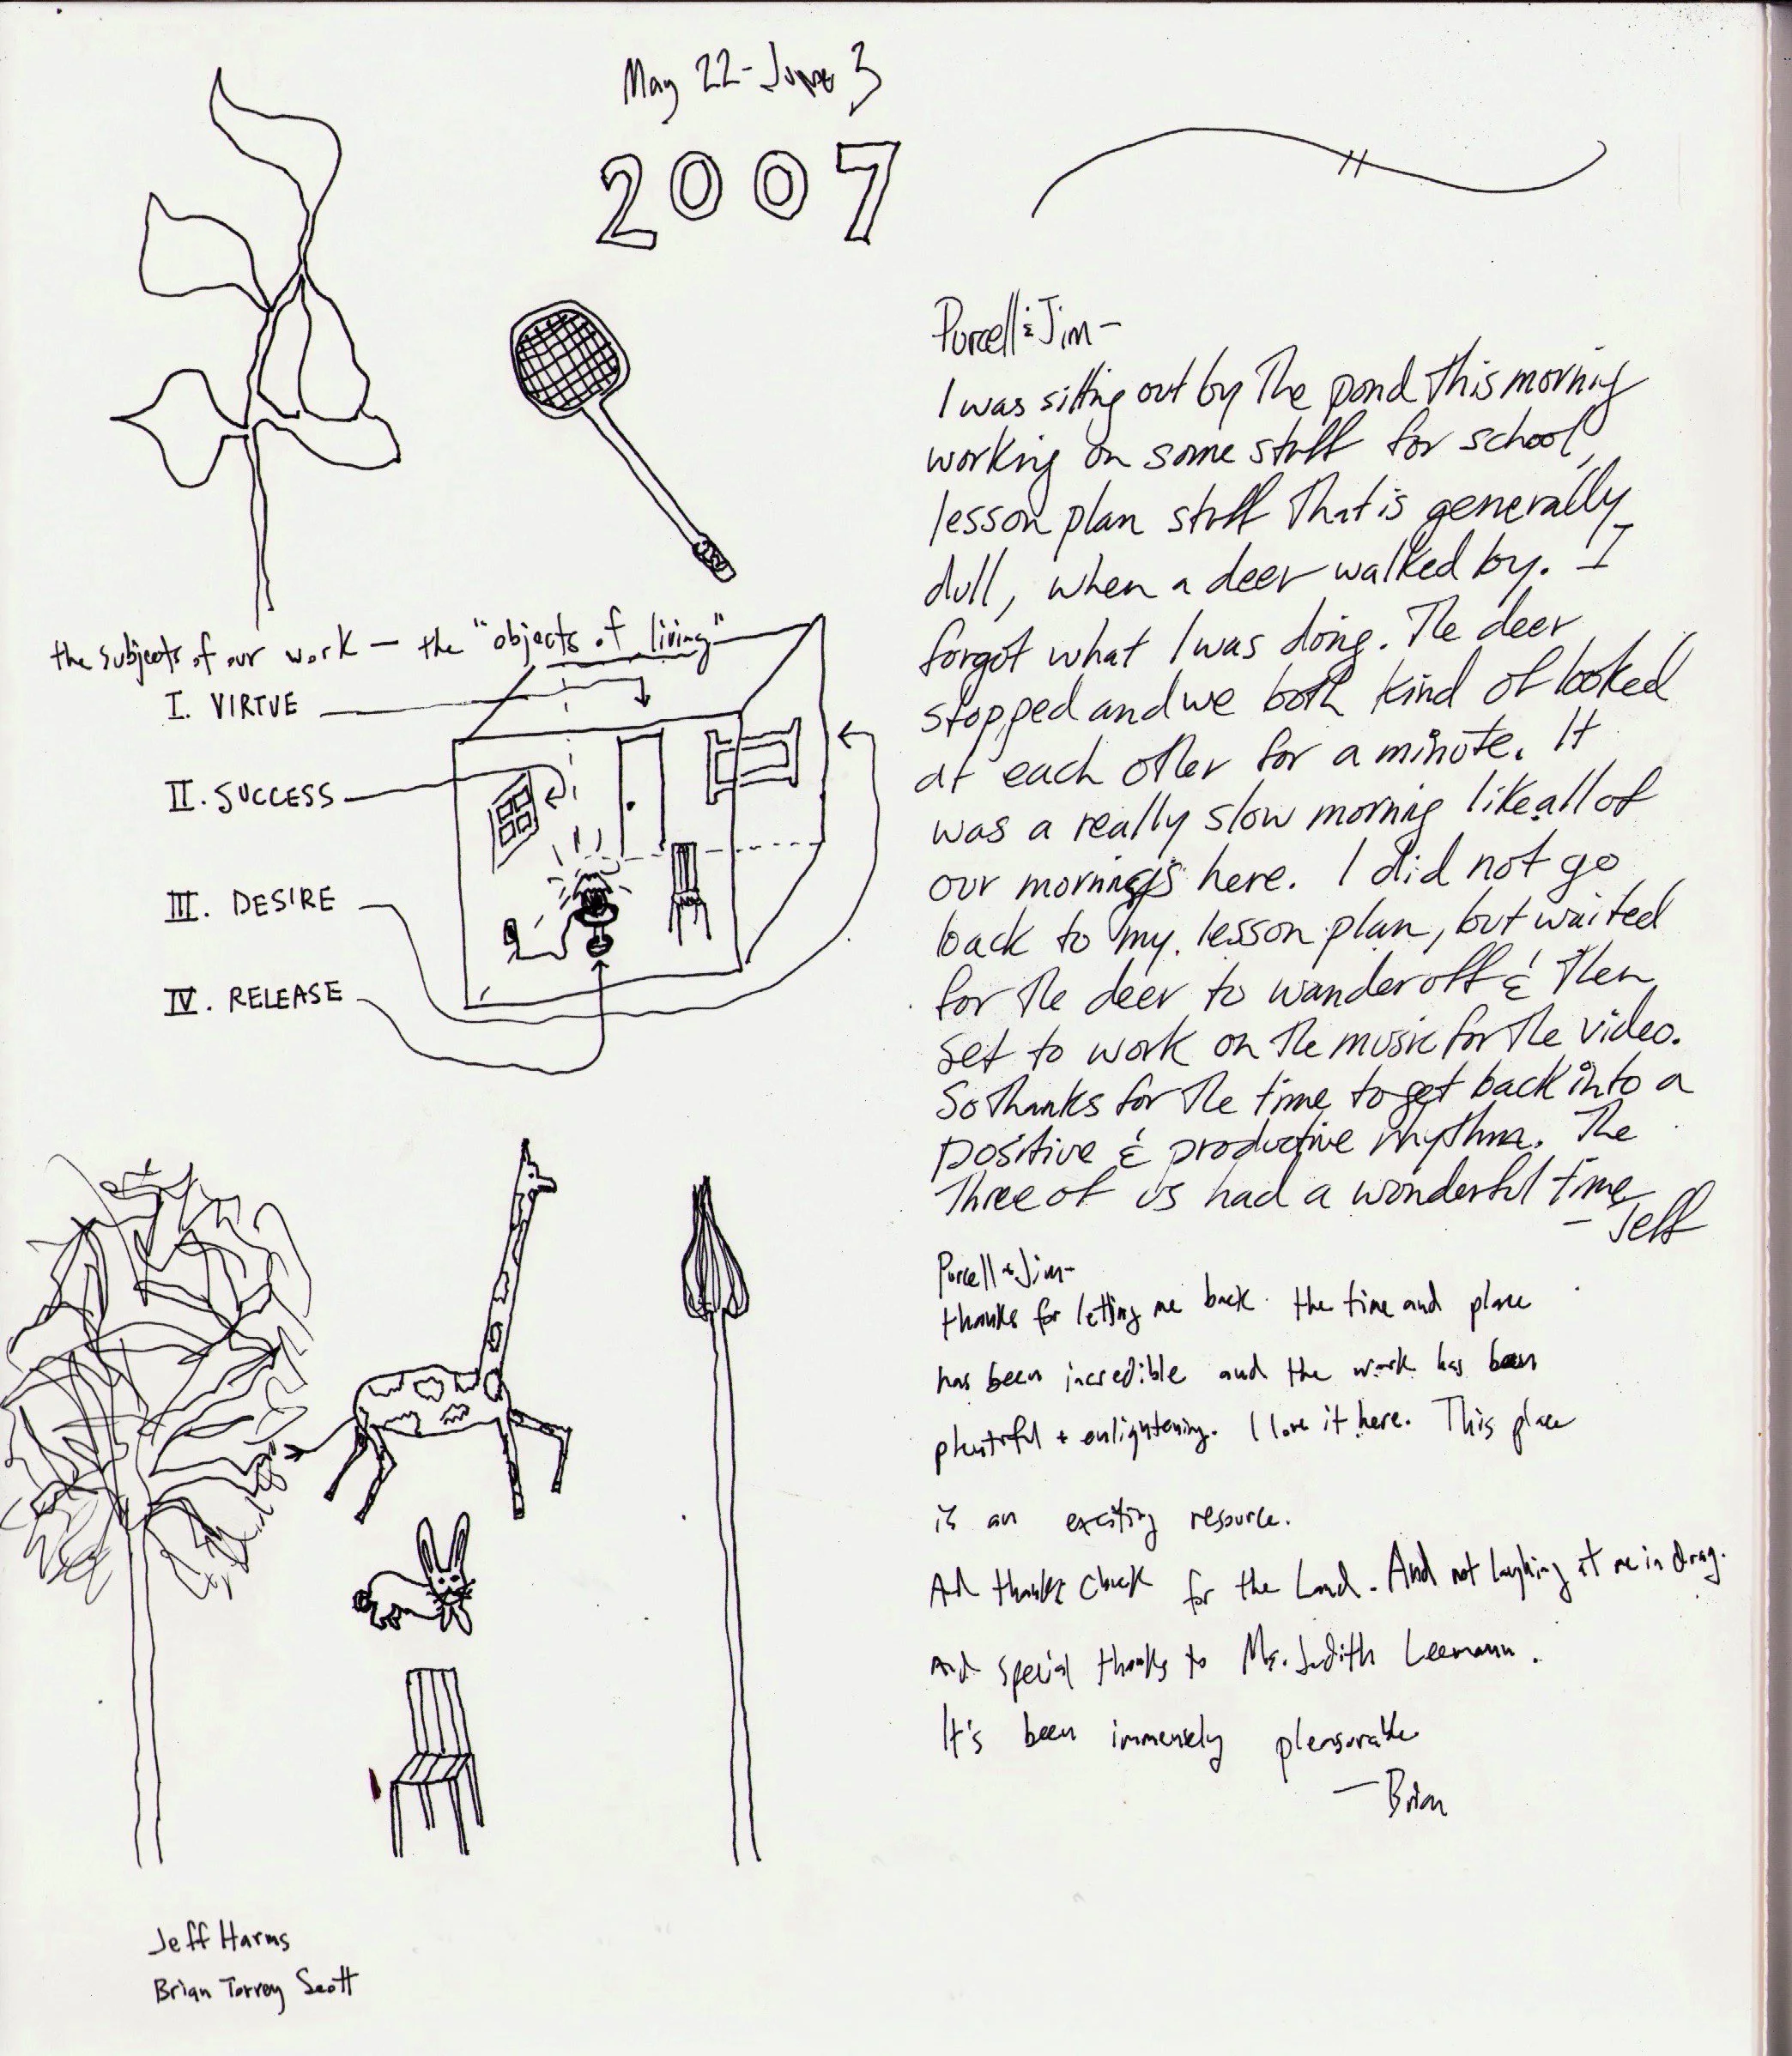 May 22 - June 3
2007
the subjects of our work — the "objects of living"
I. VIRTUE
II. SUCCESS
III. DESIRE
IV. RELEASE
Jeff Harms
Brian Torrey Scott
Purcell & Jim —
I was sitting out by the pond this morning
working on some stuff for school,
lesson plan stuff that is generally
dull, when a deer walked by. I
forgot what I was doing. The deer
stopped and we both kind of looked
at each other for a minute. It
was a really slow morning like all of
our mornings here. I did not go
back to my lesson plan, but waited
for the deer to wander off & then
set to work on the music for the video.
So thanks for the time to get back into a
positive & productive rhythm. The
three of us had a wonderful time
— Jeff
Purcell + Jim —
thanks for letting me back. the time and place
has been incredible and the work has been
plentiful + enlightening. I love it here. This place
is an exciting resource.
And thanks Chuck for the Land. And not laughing at me in drag.
And special thanks to Ms. Judith Leemann.
It's been immensely pleasurable
— Brian